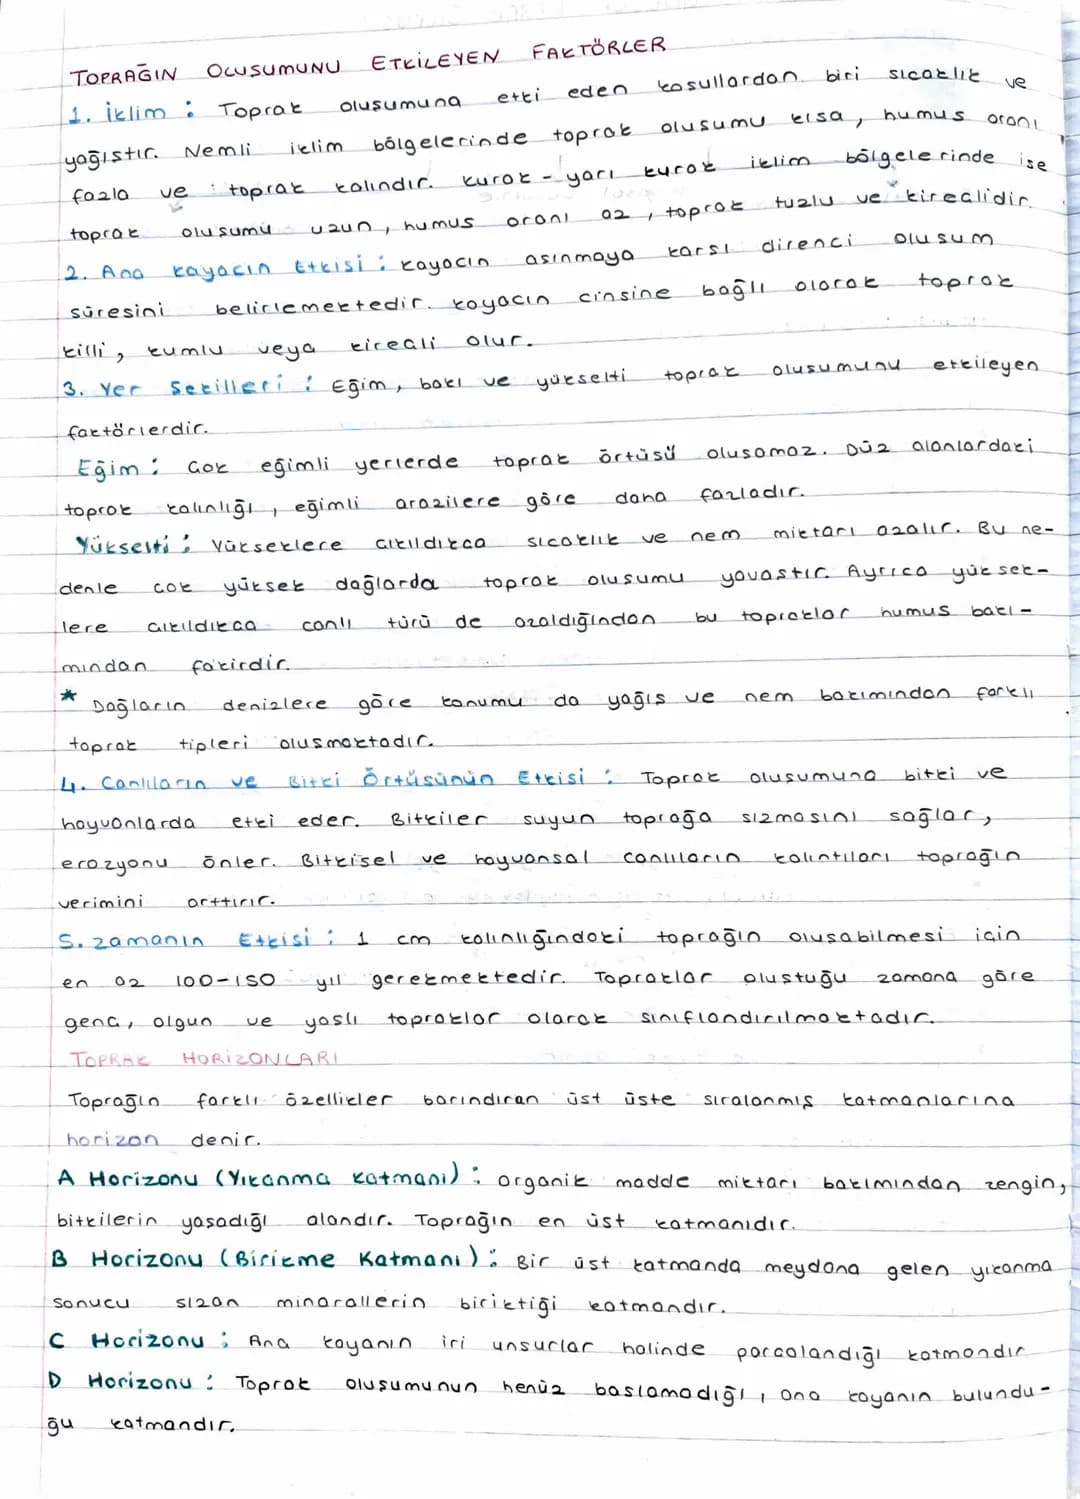 TOPRAĞIN OLUSUMUNU ETKİLEYEN FAKTÖRLER
1. İklim : Toprak oluşumuna etki eden kosullardan biri sıcaklık ve
yağıstır. Nemli iklim bölgelerinde toprak olusumu kısa, humus oranı
fazla ve toprak kalındır. Kurak - yarı kurak iklim bölgelerinde ise
toprak olusumu uzun, humus oranı az, toprak tuzlu ve kireclidir.
2. Ana kayacın Etkisi : Kayacın asınmaya karsı direnci olusum
süresini belirlemektedir. Kayacın cinsine bağlı olarak toprak
killi, kumlu veya kirecli olur.
3. Yer Sekilleri : Eğim, bakı ve yükselti toprak olusumunu etkileyen
faktörlerdir.
Eğim : Cok eğimli yerlerde toprak örtüsü olusamaz. Düz alanlardaki
toprak kalınlığı, eğimli arazilere göre daha fazladır.
Yükselti : Yükseklere cıkıldıkca sıcaklık ve nem miktarı azalır. Bu ne-
denle cok yüksek dağlarda toprak olusumu yavastır. Ayrıca yüksek-
lere cıkıldıkca canlı türü de azaldığından bu topraklar humus bakı-
mından fakirdir.
* Dağların denizlere göre konumu da yağıs ve nem bakımından farklı
toprak tipleri olusmaktadır.
4. Canlıların ve Bitki Örtüsünün Etkisi : Toprak olusumuna bitki ve
hayvanlarda etki eder. Bitkiler suyun toprağa sızmasını sağlar,
erozyonu önler. Bitkisel ve hayvansal canlıların kalıntıları toprağın
verimini arttırır.
5. zamanın Etkisi : 1 cm kalınlığındaki toprağın oluşabilmesi icin
en az 100-150 yıl gerekmektedir. Topraklar oluştuğu zamana göre
genc, olgun ve yaslı topraklar olarak sınıflandırılmaktadır.
TOPRAK HORİZONLARI
Toprağın farklı özellikler barındıran üst üste sıralanmış katmanlarına
horizon denir.
A Horizonu (Yıkanma Katmanı) : Organik madde miktarı bakımından zengin,
bitkilerin yasadığı alandır. Toprağın en üst katmanıdır.
B Horizonu (Birikme Katmanı) : Bir üst katmanda meydana gelen yıkanma
sonucu sızan minarallerin biriktiği katmandır.
C Horizonu : Ana kayanın iri unsurlar halinde parcalandığı katmandır
D Horizonu : Toprak oluşumunun henüz baslamadığı, ana kayanın bulundu-
ğu katmandır.